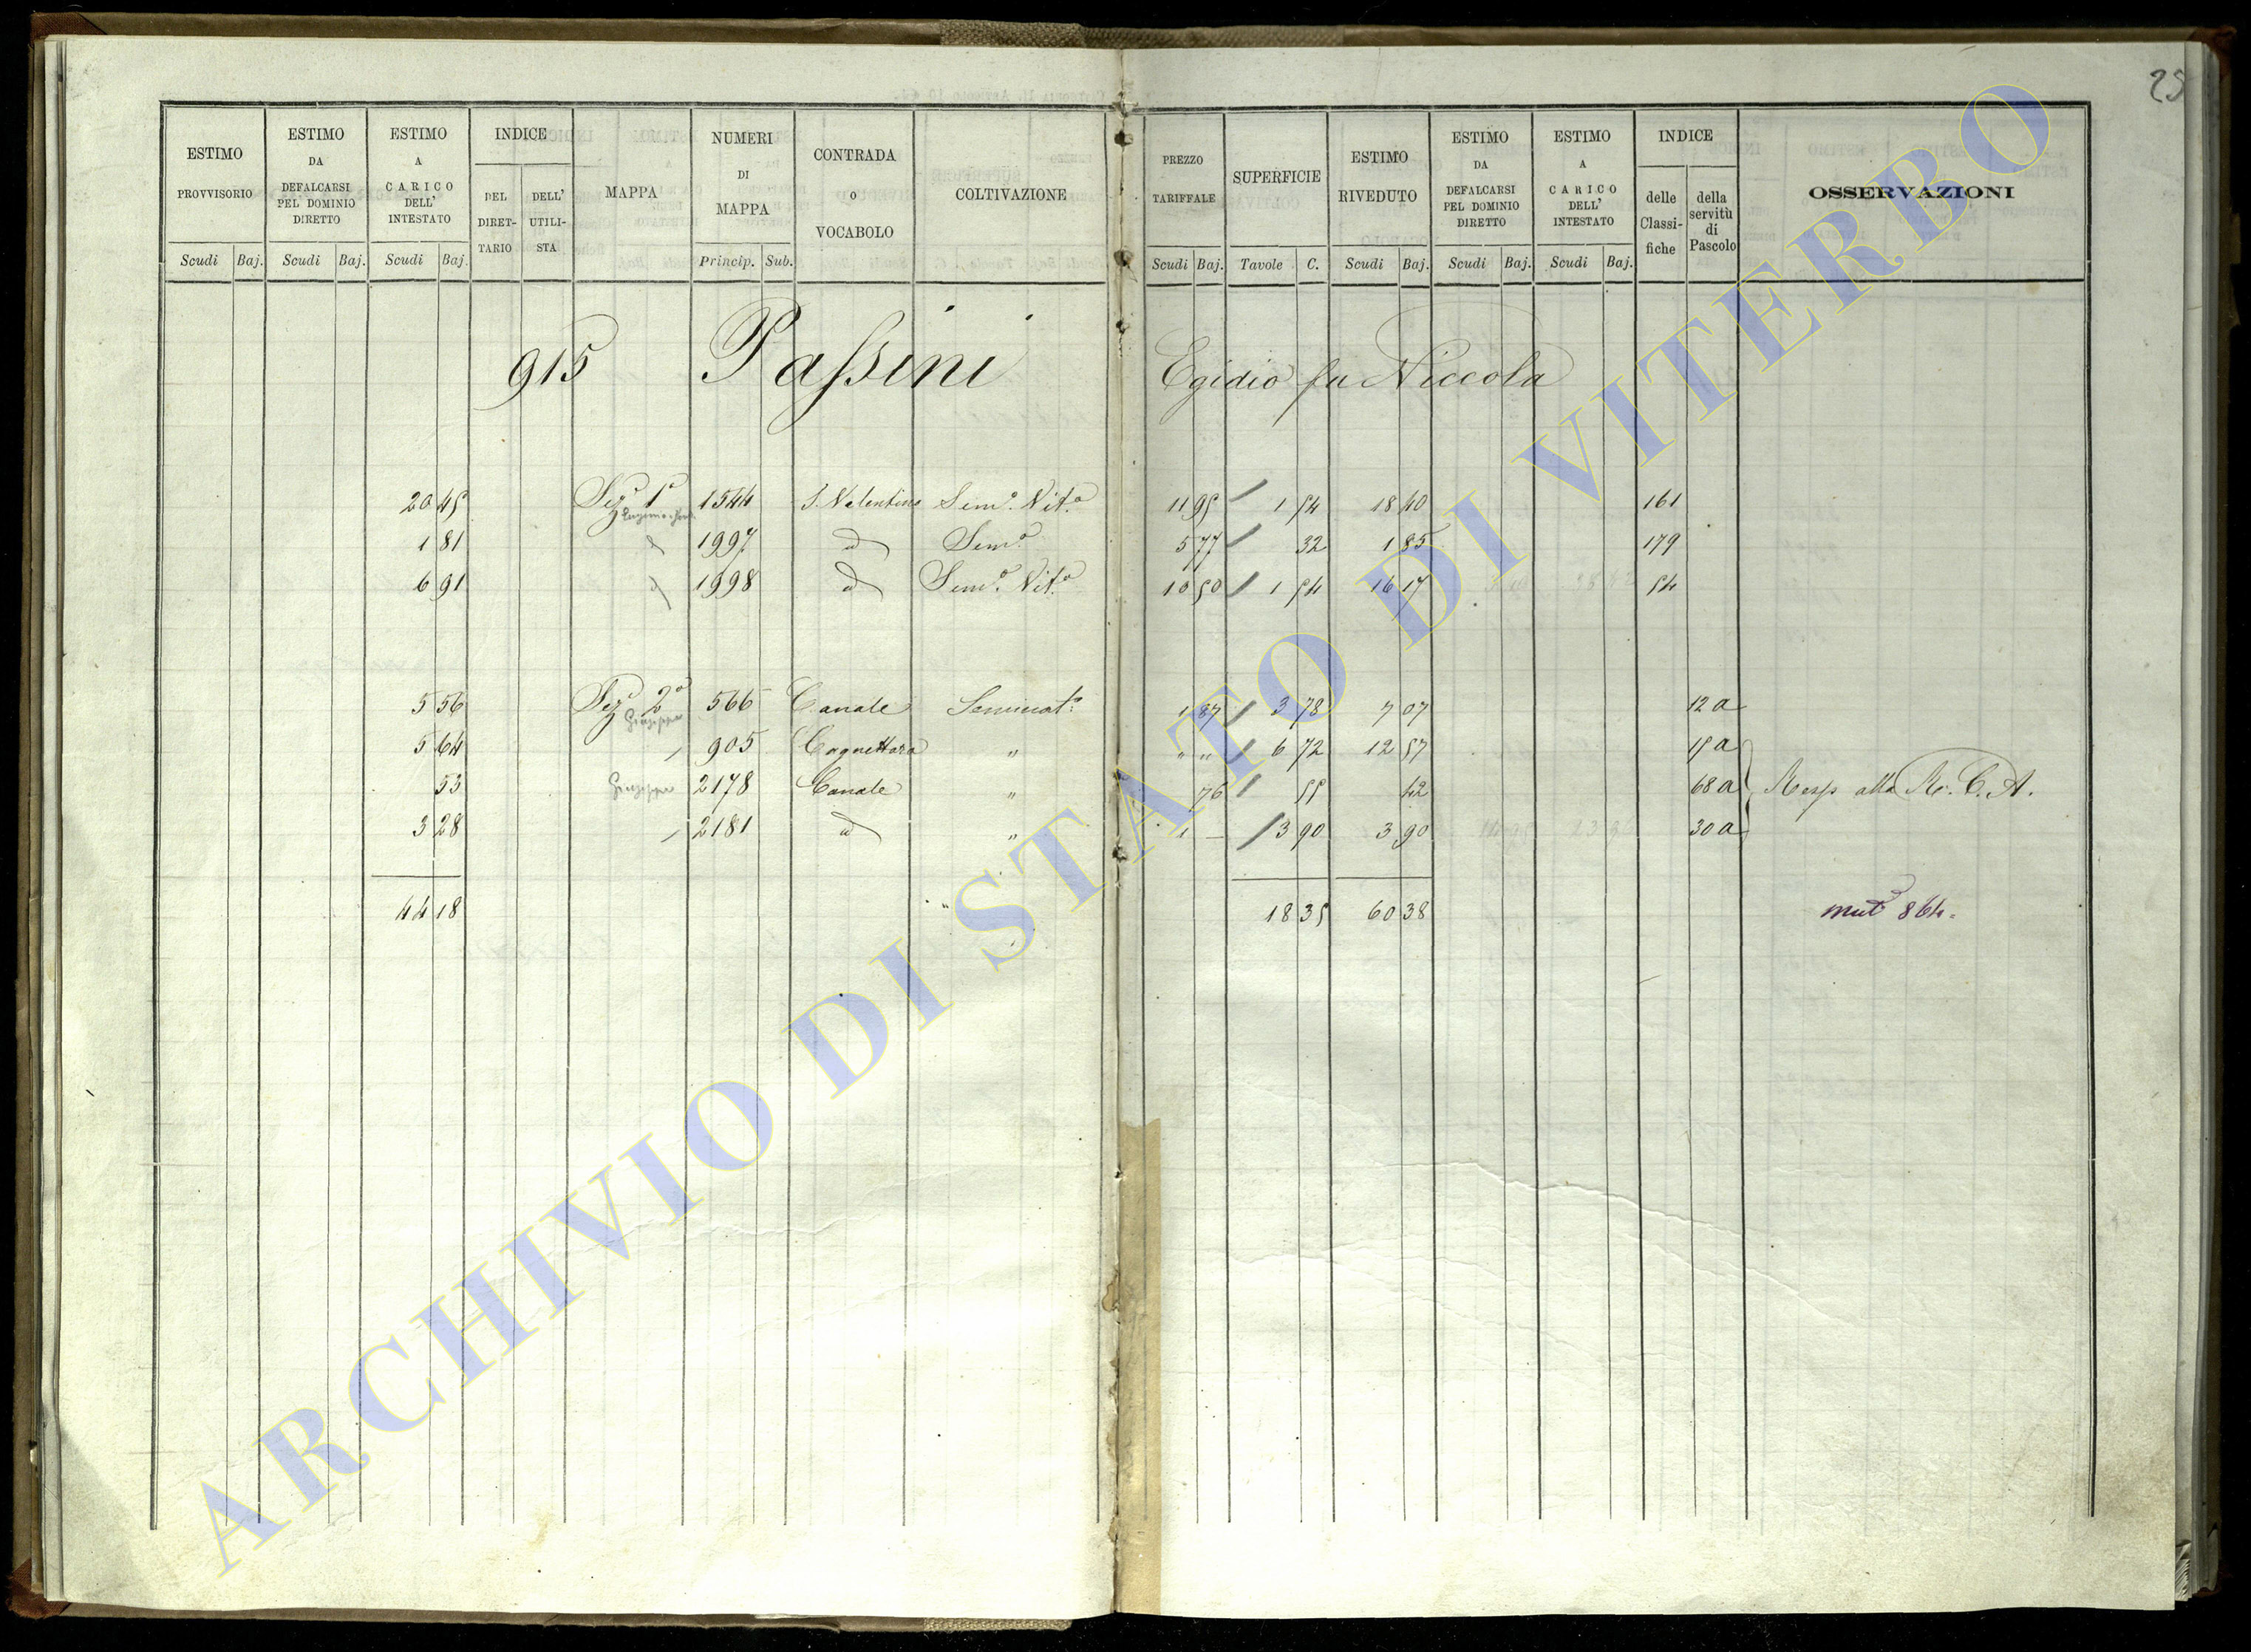 25
ESTIMO PROVVISORIO Scudi Baj.
ESTIMO DA DEFALCARSI PEL DOMINIO DIRETTO Scudi Baj.
ESTIMO A CARICO DELL' INTESTATO Scudi Baj.
INDICE DEL DIRETTARIO DELL' UTILISTA
MAPPA
NUMERI DI MAPPA Princip. Sub.
CONTRADA o VOCABOLO
COLTIVAZIONE
PREZZO TARIFFALE Scudi Baj.
SUPERFICIE Tavole C.
ESTIMO RIVEDUTO Scudi Baj.
ESTIMO DA DEFALCARSI PEL DOMINIO DIRETTO Scudi Baj.
ESTIMO A CARICO DELL' INTESTATO Scudi Baj.
INDICE delle Classifiche della servitù di Pascolo
OSSERVAZIONI
915 Passini Egidio fu Niccola
20 45 Sez. 1ª 1544 S. Valentino Sem.º Vit.º 11 95 1 54 18 40 161
1 81 d 1997 d Sem.º 5 77 32 1 85 179
6 91 d 1998 d Sem.º Vit.º 10 50 1 54 16 17 54
5 56 Sez. 2ª 566 Canale Seminat.º 1 87 3 78 7 07 12 a
Giuseppe
5 64 905 Cagnettara " " " 6 72 12 57 15 a
53 Giuseppe 2178 Canale " 76 55 42 68 a Resp alla R. C. A.
3 28 2181 d " 1 — 3 90 3 90 30 a
44 18 18 35 60 38 mut 864
ARCHIVIO DI STATO DI VITERBO